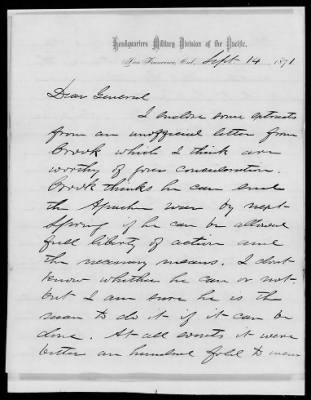 Headquarters Military Division of the Pacific.
San Francisco, Cal., Sept 14 1871
Dear General
I enclose some extracts
from an unofficial letter from
Crook which I think are
worthy of your consideration.
Crook thinks he can end
the Apache war by next
Spring if he can be allowed
full liberty of action and
the necessary means. I dont
know whether he can or not
but I am sure he is the
man to do it if it can be
done. At all events it were
better an hundred fold to